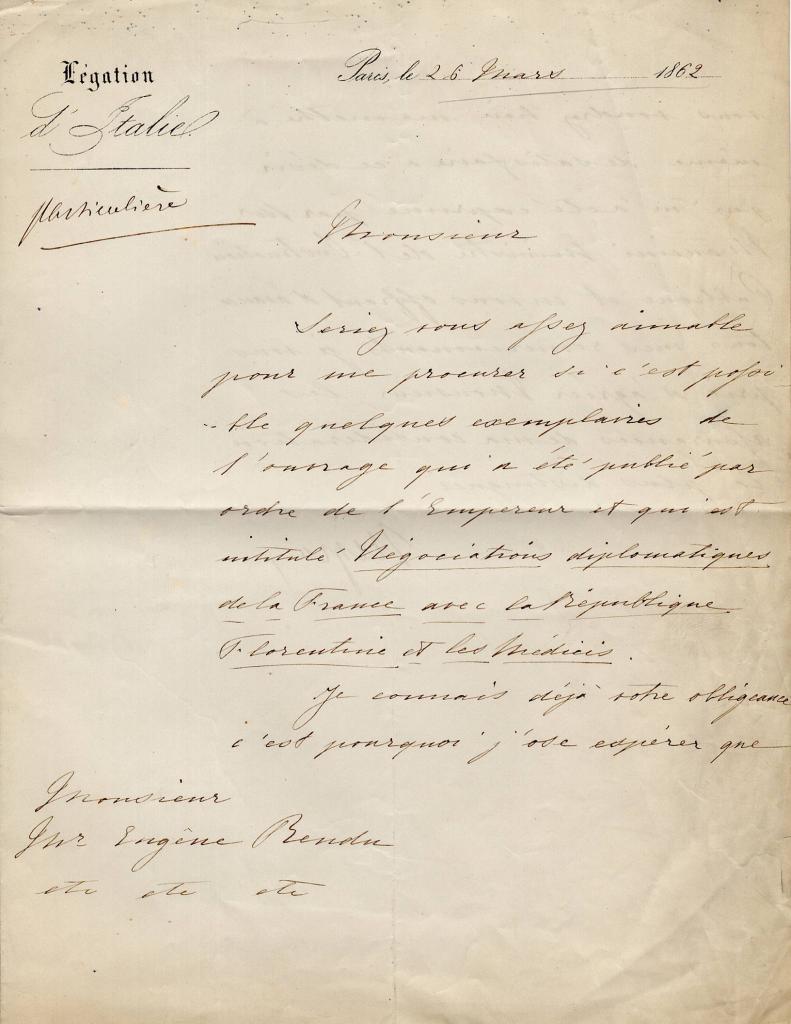 Légation
d'Italie
Paris, le 26 Mars 1862
particulière
Monsieur
Seriez vous assez aimable
pour me procurer si c'est possi-
-ble quelques exemplaires de
l'ouvrage qui a été publié par
ordre de l'Empereur et qui est
intitulé Négociations diplomatiques
de la France avec la République
Florentine et les Médicis.
Je connais déjà votre obligeance
c'est pourquoi j'ose espérer que
Monsieur
Mr Eugène Rendu
etc etc etc